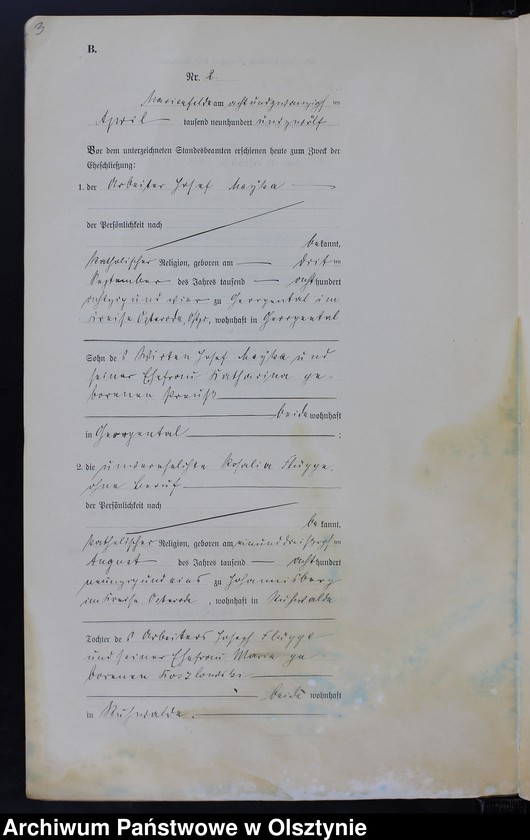 3
B.
Nr. 2.
Marienfelde am achtundzwanzigsten
April tausend neunhundert und zwölf
Vor dem unterzeichneten Standesbeamten erschienen heute zum Zweck der
Eheschließung:
1. der Arbeiter Josef
der Persönlichkeit nach
bekannt,
katholischer Religion, geboren am dritten
September des Jahres tausend achthundert
achtzig und vier zu Georgental im
Kreise Osterode, Ostpr, wohnhaft in Georgental
Sohn des Wirten Josef und
seiner Ehefrau Katharina ge-
borenen Preuß
beide wohnhaft
in Georgental ;
2. die unverehelichte Rosalia
ohne Beruf
der Persönlichkeit nach
bekannt,
katholischer Religion, geboren am einunddreißigsten
August des Jahres tausend achthundert
neunzig und eins zu Johannisberg
im Kreise Osterode, wohnhaft in Ruhwalde
Tochter des Arbeiters Joseph
und seiner Ehefrau Maria ge
borenen
beide wohnhaft
in Ruhwalde.
Archiwum Państwowe w Olsztynie